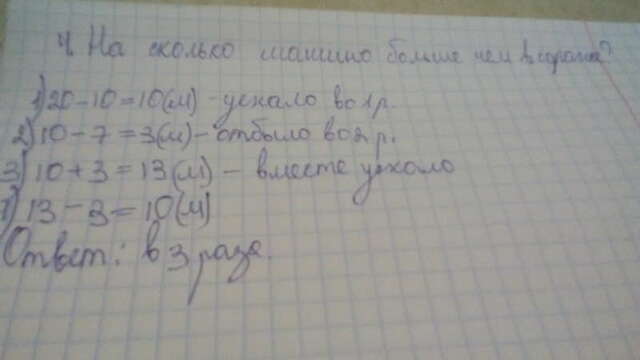 4. На сколько машино больше чем второна?
1) 20 - 10 = 10 (м) - уехало во 1 р.
2) 10 - 7 = 3 (м) - отбыло во 2 р.
3) 10 + 3 = 13 (м) - вместе уехало
13 - 3 = 10 (м)
Ответ: в 3 раза.